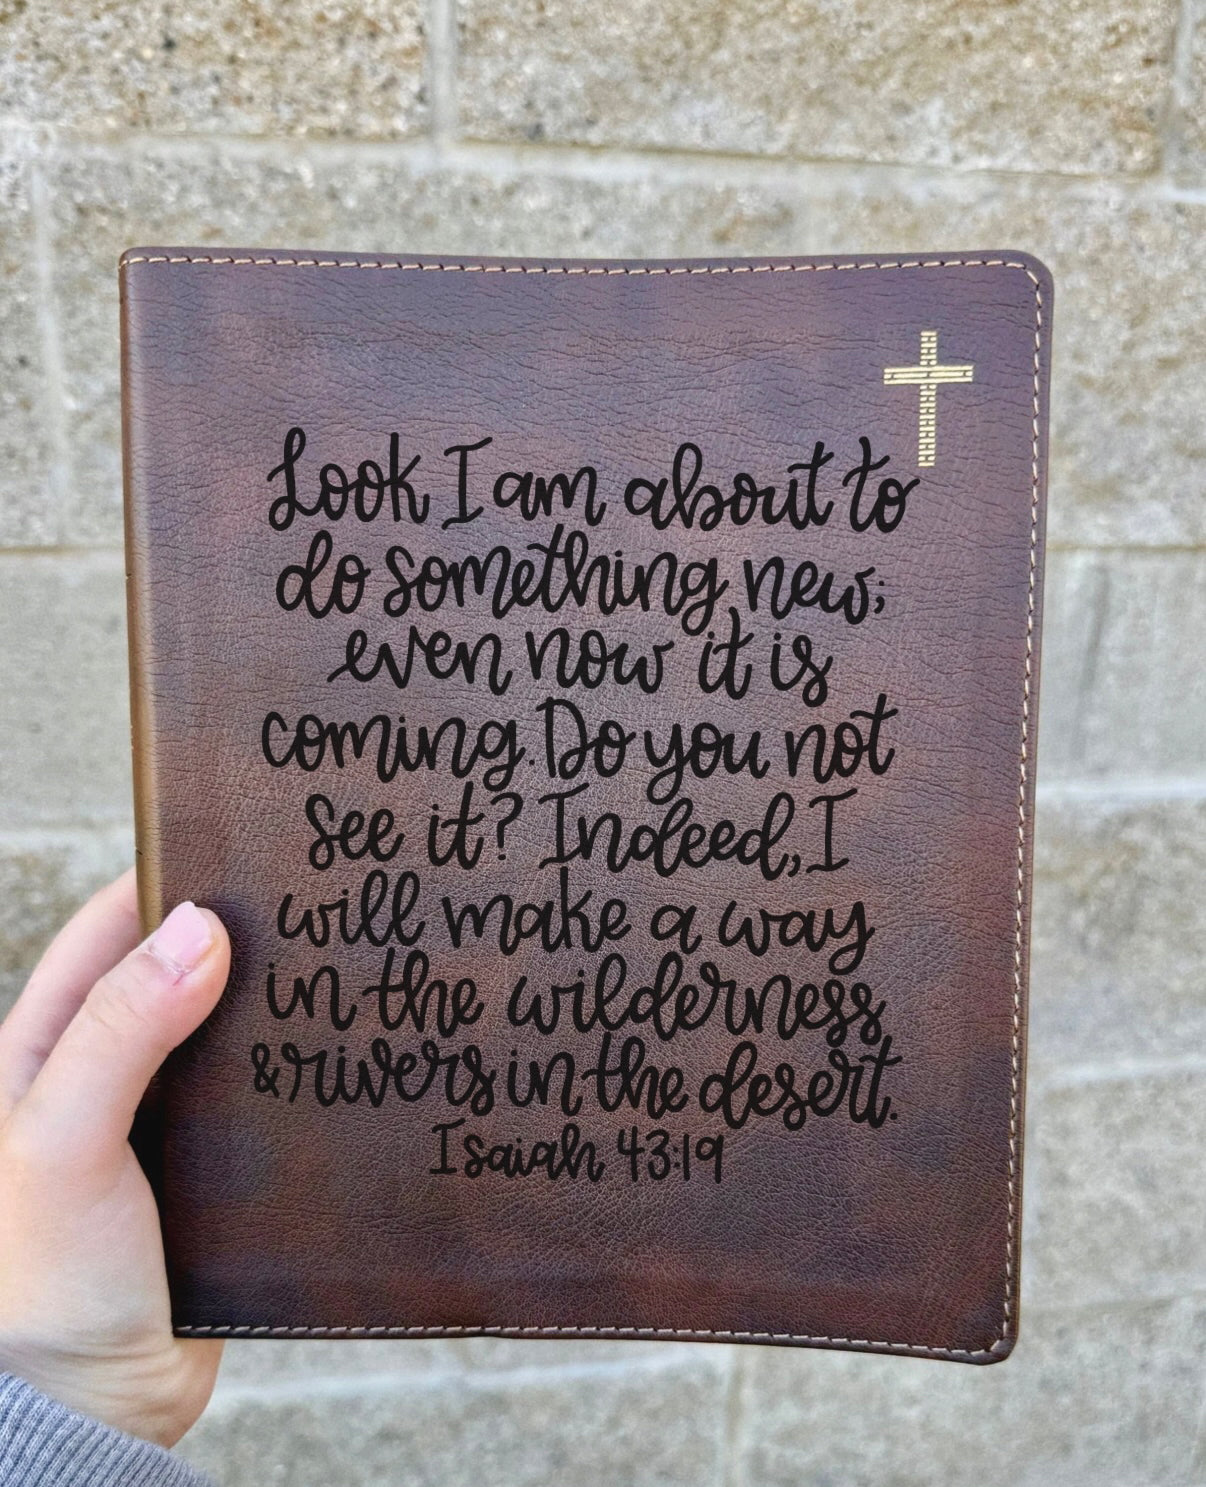 Look I am about to
do something new;
even now it is
coming. Do you not
see it? Indeed, I
will make a way
in the wilderness
& rivers in the desert.
Isaiah 43:19